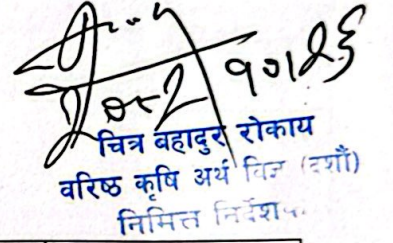 चित्र बहादुर रोकाय
वरिष्ठ कृषि अर्थ विज्ञ (दशौं)
निमित्त निर्देशक